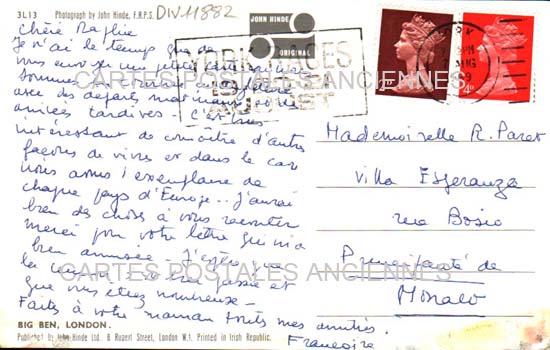 3L13 Photograph by John Hinde, F.R.P.S. DIV-11882
JOHN HINDE
ORIGINAL
Chère
Je n'ai le temps que de
vous envoyer un petite
sommes
avec des départs matinaux et de
arrivées tardives - c'est très
intéressant de connaître d'autres
façons de vivre et dans le car
nous avons l'exemplaire de
chaque pays d'Europe - j'aurai
bien des choses à vous raconter
merci pour votre lettre qui m'a
bien amusée J'espère que
la
que vous étiez nombreuse -
Faites à votre maman toutes mes amitiés.
Françoise
YORK RACES
4D
Mademoiselle R. Paret
Villa Esperanza
rue Bosio
Principauté de
Monaco
CARTES POSTALES ANCIENNES
CARTES POSTALES ANCIENNES
BIG BEN, LONDON.
Published by John Hinde Ltd. 6 Rupert Street, London W.1. Printed in Irish Republic.